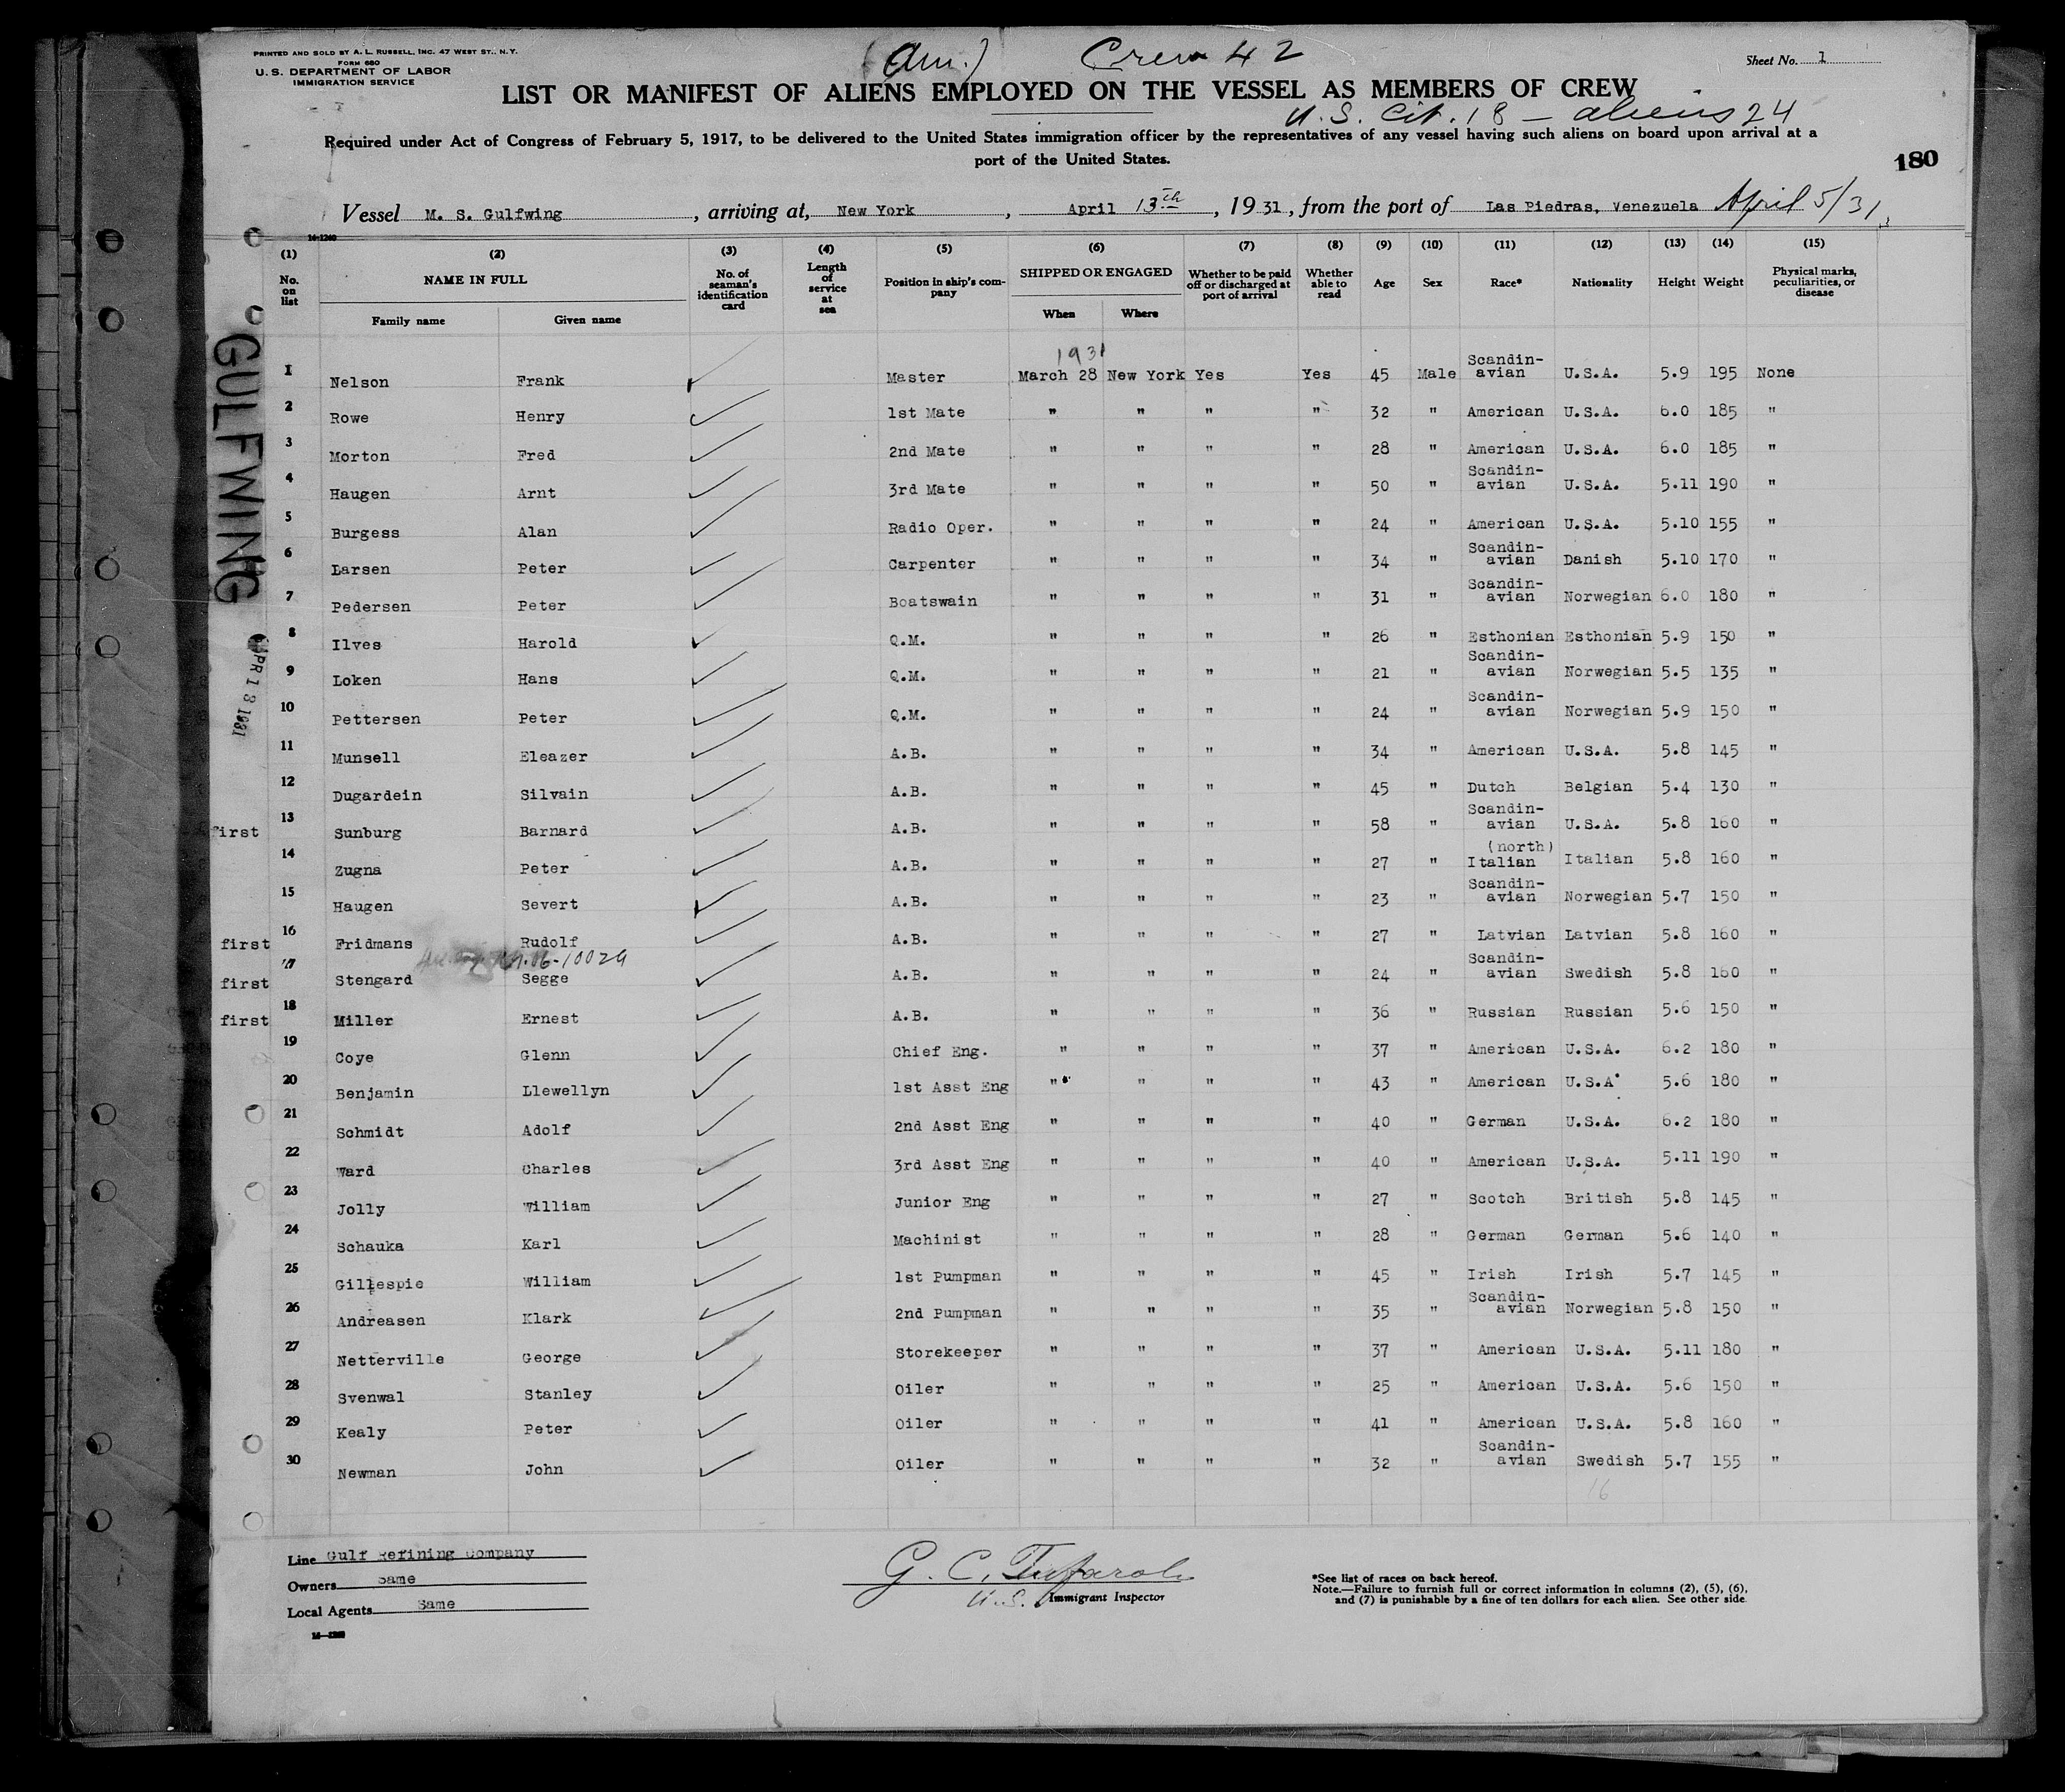 PRINTED AND SOLD BY A. L. RUSSELL, INC. 47 WEST ST., N. Y.
FORM 680
U. S. DEPARTMENT OF LABOR
IMMIGRATION SERVICE
(Am.) Crew 42
Sheet No. 1
LIST OR MANIFEST OF ALIENS EMPLOYED ON THE VESSEL AS MEMBERS OF CREW
U.S. Cit. 18 — aliens 24
Required under Act of Congress of February 5, 1917, to be delivered to the United States immigration officer by the representatives of any vessel having such aliens on board upon arrival at a
port of the United States.
180
Vessel M. S. Gulfwing, arriving at, New York, April 13th, 1931, from the port of Las Piedras, Venezuela April 5/31
14-1240
(1) (2) (3) (4) (5) (6) (7) (8) (9) (10) (11) (12) (13) (14) (15)
No. on list NAME IN FULL No. of seaman's identification card Length of service at sea Position in ship's company SHIPPED OR ENGAGED Whether to be paid off or discharged at port of arrival Whether able to read Age Sex Race* Nationality Height Weight Physical marks, peculiarities, or disease
Family name Given name When Where
1931
1 Nelson Frank Master March 28 New York Yes Yes 45 Male Scandin-avian U.S.A. 5.9 195 None
2 Rowe Henry 1st Mate " " " " 32 " American U.S.A. 6.0 185 "
3 Morton Fred 2nd Mate " " " " 28 " American U.S.A. 6.0 185 "
4 Haugen Arnt 3rd Mate " " " " 50 " Scandin-avian U.S.A. 5.11 190 "
5 Burgess Alan Radio Oper. " " " " 24 " American U.S.A. 5.10 155 "
6 Larsen Peter Carpenter " " " " 34 " Scandin-avian Danish 5.10 170 "
7 Pedersen Peter Boatswain " " " " 31 " Scandin-avian Norwegian 6.0 180 "
8 Ilves Harold Q.M. " " " " 26 " Esthonian Esthonian 5.9 150 "
9 Loken Hans Q.M. " " " " 21 " Scandin-avian Norwegian 5.5 135 "
10 Pettersen Peter Q.M. " " " " 24 " Scandin-avian Norwegian 5.9 150 "
11 Munsell Eleazer A.B. " " " " 34 " American U.S.A. 5.8 145 "
12 Dugardein Silvain A.B. " " " " 45 " Dutch Belgian 5.4 130 "
first 13 Sunburg Barnard A.B. " " " " 58 " Scandin-avian U.S.A. 5.8 160 "
14 Zugna Peter A.B. " " " " 27 " (north) Italian Italian 5.8 160 "
15 Haugen Severt A.B. " " " " 23 " Scandin-avian Norwegian 5.7 150 "
first 16 Fridmans Rudolf A.B. " " " " 27 " Latvian Latvian 5.8 160 "
first 17 Stengard Segge A.B. " " " " 24 " Scandin-avian Swedish 5.8 160 "
first 18 Miller Ernest A.B. " " " " 36 " Russian Russian 5.6 150 "
19 Coye Glenn Chief Eng. " " " " 37 " American U.S.A. 6.2 180 "
20 Benjamin Llewellyn 1st Asst Eng " " " " 43 " American U.S.A. 5.6 180 "
21 Schmidt Adolf 2nd Asst Eng " " " " 40 " German U.S.A. 6.2 180 "
22 Ward Charles 3rd Asst Eng " " " " 40 " American U.S.A. 5.11 190 "
23 Jolly William Junior Eng " " " " 27 " Scotch British 5.8 145 "
24 Schauka Karl Machinist " " " " 28 " German German 5.6 140 "
25 Gillespie William 1st Pumpman " " " " 45 " Irish Irish 5.7 145 "
26 Andreasen Klark 2nd Pumpman " " " " 35 " Scandin-avian Norwegian 5.8 150 "
27 Netterville George Storekeeper " " " " 37 " American U.S.A. 5.11 180 "
28 Svenwal Stanley Oiler " " " " 25 " American U.S.A. 5.6 150 "
29 Kealy Peter Oiler " " " " 41 " American U.S.A. 5.8 160 "
30 Newman John Oiler " " " " 32 " Scandin-avian Swedish 5.7 155 "
16
GULFWING
APR 13 1931
Line Gulf Refining Company
Owners Same
Local Agents Same
G. C.
U.S. Immigrant Inspector
*See list of races on back hereof.
Note.—Failure to furnish full or correct information in columns (2), (5), (6),
and (7) is punishable by a fine of ten dollars for each alien. See other side.